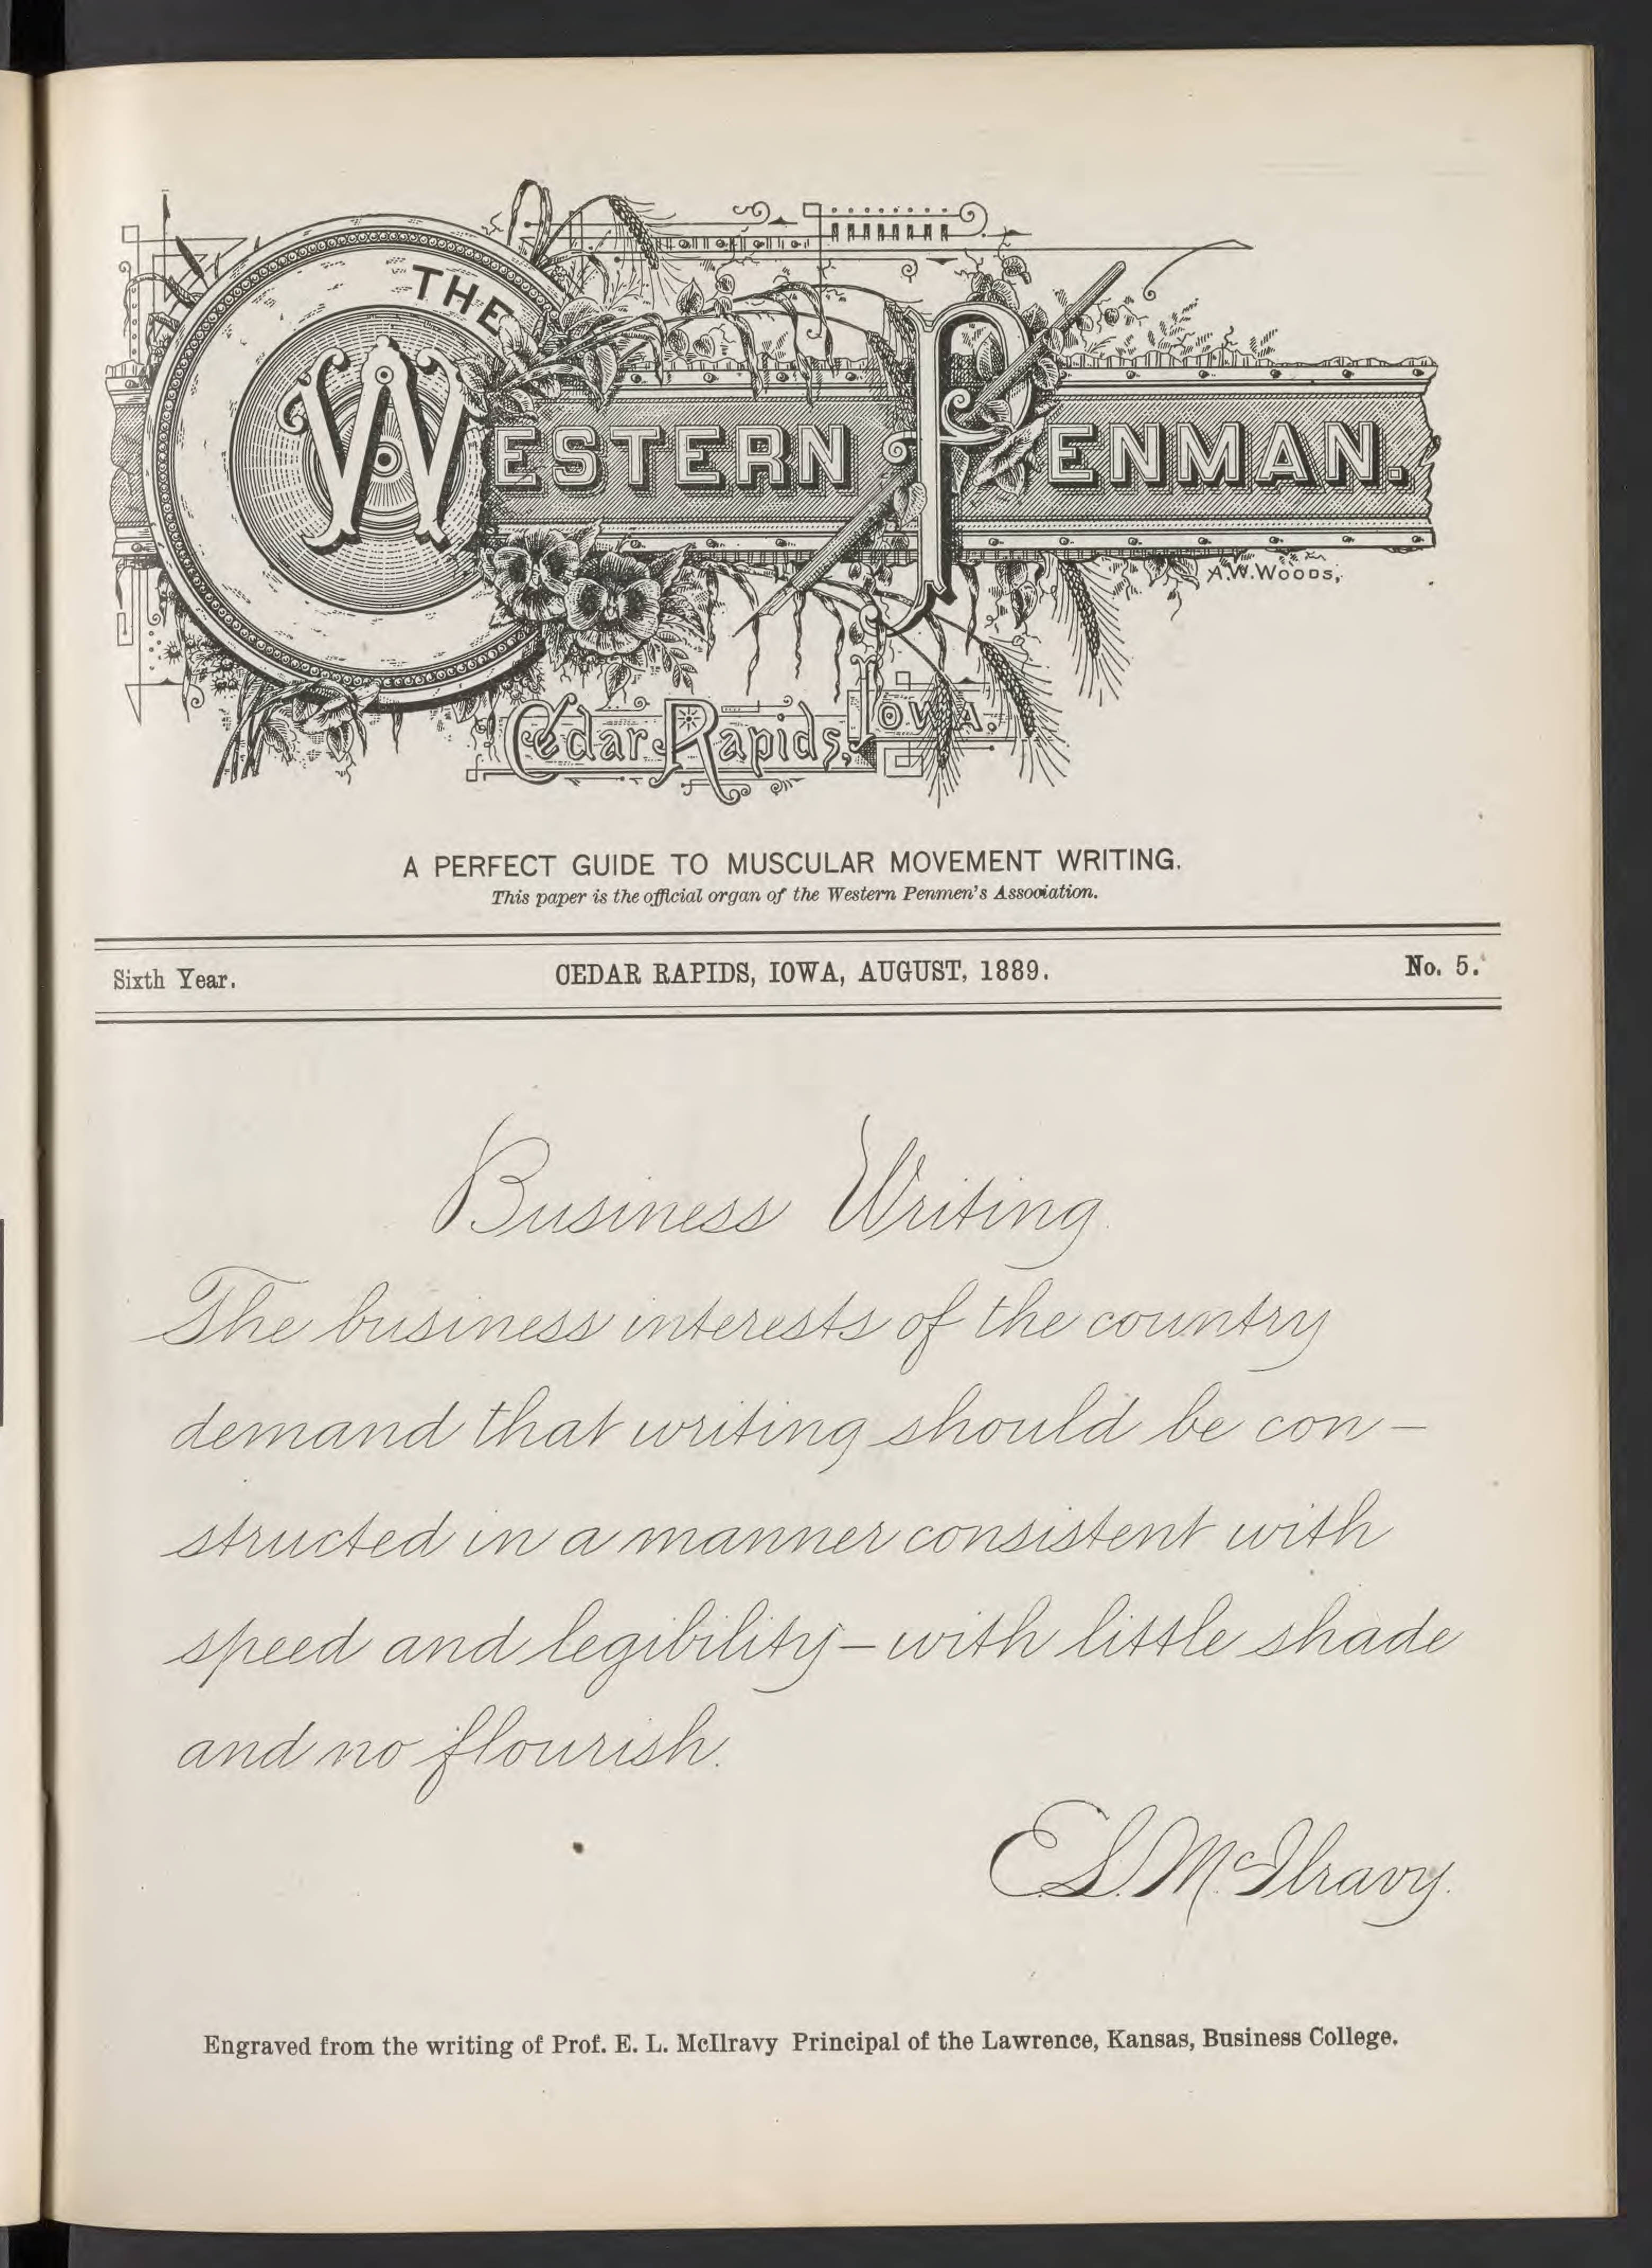 THE
WESTERN PENMAN.
A.W. WOODS,
Cedar Rapids, IOWA.
A PERFECT GUIDE TO MUSCULAR MOVEMENT WRITING.
This paper is the official organ of the Western Penmen's Association.
Sixth Year. CEDAR RAPIDS, IOWA, AUGUST, 1889. No. 5.
Business Writing.
The business interests of the country
demand that writing should be con–
structed in a manner consistent with
speed and legibility – with little shade
and no flourish.
E.L. McIlravy.
Engraved from the writing of Prof. E. L. McIlravy Principal of the Lawrence, Kansas, Business College.